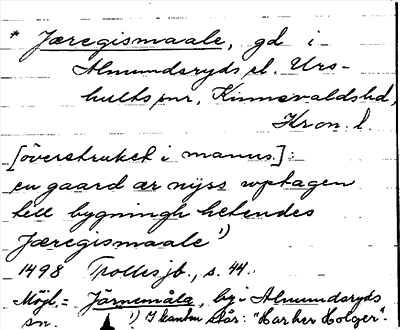 * Jæregismaale, gd i
Almundsryds el. Urs-
hults snr, Kinnevaldshd,
Kron. l.
[överstruket i manus.]:
en gaard ær nyss uptagen
tell bygningh hetendes
Jæregismaale 1)
1498 Trollesjb., s. 44.
Möjl. = Järnemåla, by i Almundsryds
sn. 1) I kanten står: "Har her Holger".